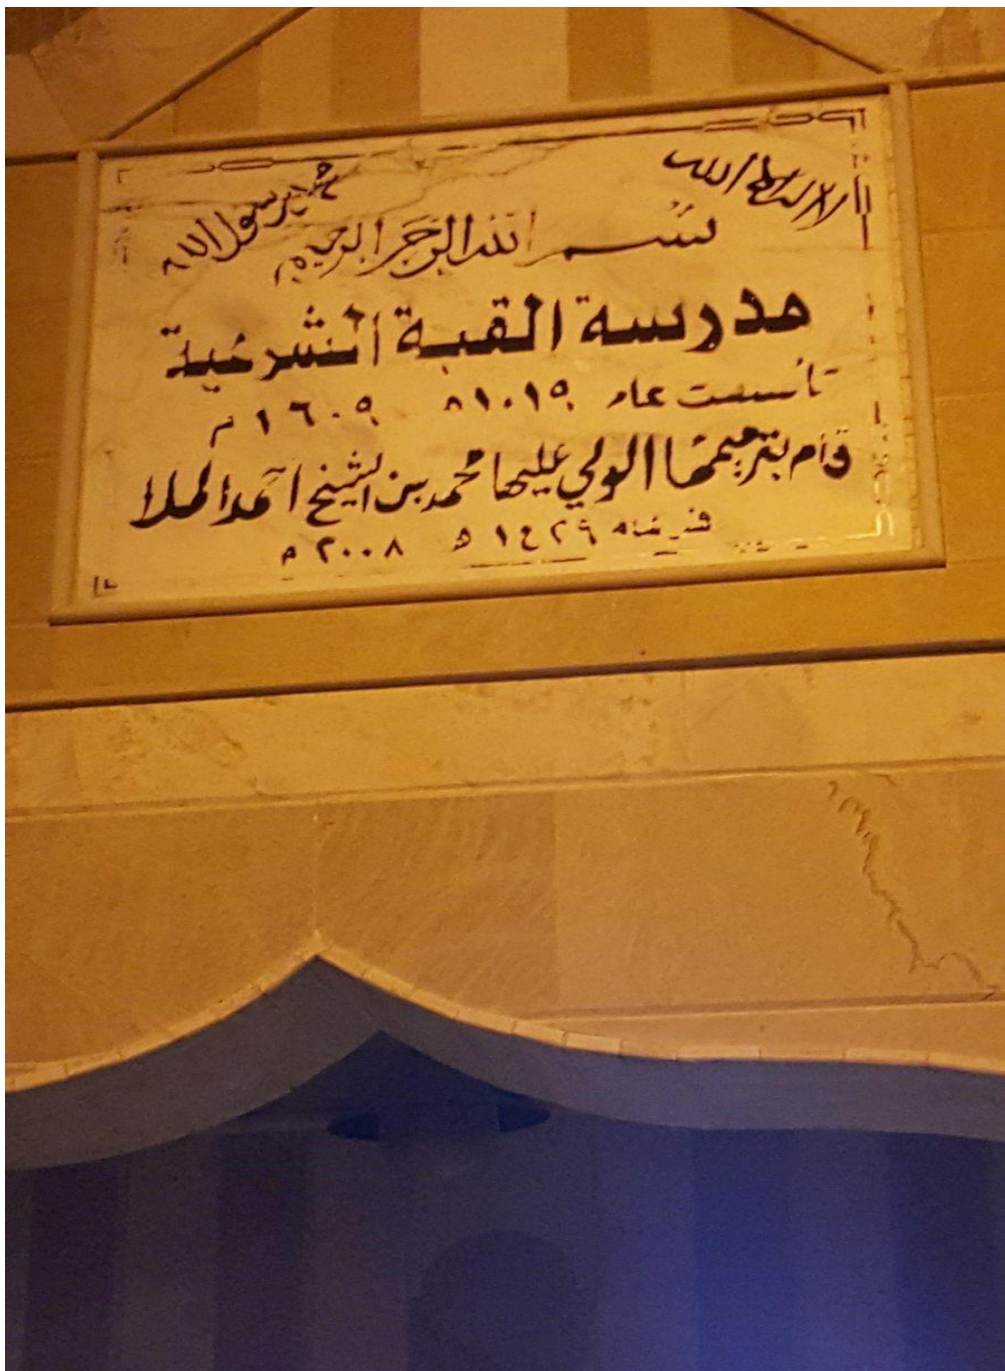 لا إله إلا الله
محمد رسول الله
بسم الله الرحمن الرحيم
مدرسة القبة الشرعية
تأسست عام ١٠١٩ ه ١٦٠٩ م
قام بترميمها الولي عليها محمد بن الشيخ أحمد الملا
في سنة ١٤٢٩ ه ٢٠٠٨ م